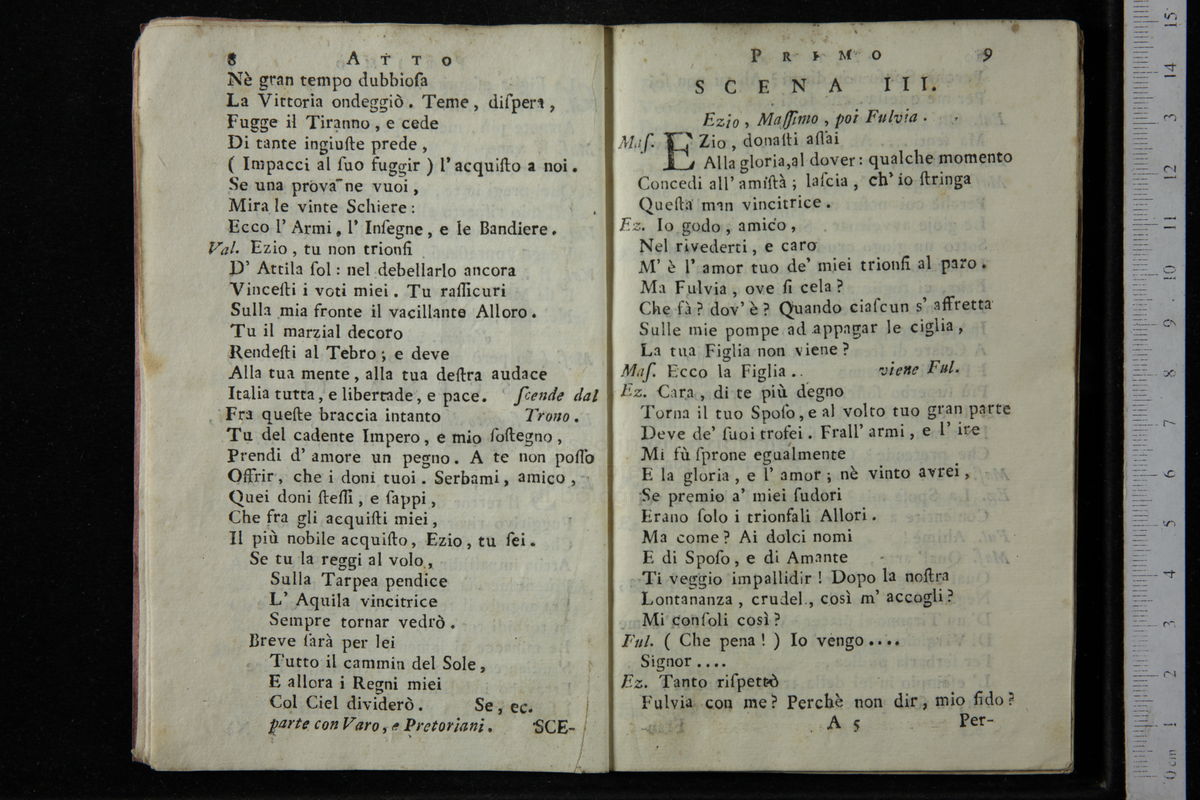 8 ATTO
Nè gran tempo dubbioſa
La Vittoria ondeggiò. Teme, diſpera,
Fugge il Tiranno, e cede
Di tante ingiuſte prede,
( Impacci al ſuo fuggir ) l' acquiſto a noi.
Se una prova ne vuoi,
Mira le vinte Schiere:
Ecco l' Armi, l' Inſegne, e le Bandiere.
Val. Ezio, tu non trionfi
D' Attila ſol: nel debellarlo ancora
Vinceſti i voti miei. Tu raſſicuri
Sulla mia fronte il vacillante Alloro.
Tu il marzial decoro
Rendeſti al Tebro; e deve
Alla tua mente, alla tua deſtra audace
Italia tutta, e libertade, e pace. ſcende dal
Fra queſte braccia intanto Trono.
Tu del cadente Impero, e mio ſoſtegno,
Prendi d' amore un pegno. A te non poſſo
Offrir, che i doni tuoi. Serbami, amico,
Quei doni ſteſſi, e ſappi,
Che fra gli acquiſti miei,
Il più nobile acquiſto, Ezio, tu ſei.
Se tu la reggi al volo,
Sulla Tarpea pendice
L' Aquila vincitrice
Sempre tornar vedrò.
Breve ſarà per lei
Tutto il cammin del Sole,
E allora i Regni miei
Col Ciel dividerò. Se, ec.
parte con Varo, e Pretoriani. SCE-
PRIMO 9
SCENA III.
Ezio, Maſſimo, poi Fulvia.
Maſ. EZio, donaſti aſſai
Alla gloria, al dover: qualche momento
Concedi all' amiſtà; laſcia, ch' io ſtringa
Queſta man vincitrice.
Ez. Io godo, amico,
Nel rivederti, e caro
M' è l' amor tuo de' miei trionfi al paro.
Ma Fulvia, ove ſi cela?
Che fà? dov' è? Quando ciaſcun s' affretta
Sulle mie pompe ad appagar le ciglia,
La tua Figlia non viene?
Maſ. Ecco la Figlia. viene Ful.
Ez. Cara, di te più degno
Torna il tuo Spoſo, e al volto tuo gran parte
Deve de' ſuoi trofei. Frall' armi, e l' ire
Mi fù ſprone egualmente
E la gloria, e l' amor; nè vinto avrei,
Se premio a' miei ſudori
Erano ſolo i trionfali Allori.
Ma come? Ai dolci nomi
E di Spoſo, e di Amante
Ti veggio impallidir! Dopo la noſtra
Lontananza, crudel, così m' accogli?
Mi conſoli così?
Ful. ( Che pena! ) Io vengo....
Signor....
Ez. Tanto riſpettò
Fulvia con me? Perchè non dir, mio fido?
A 5 Per-
15
14
3
12
11
10
9
8
7
6
5
4
3
2
1
0 cm